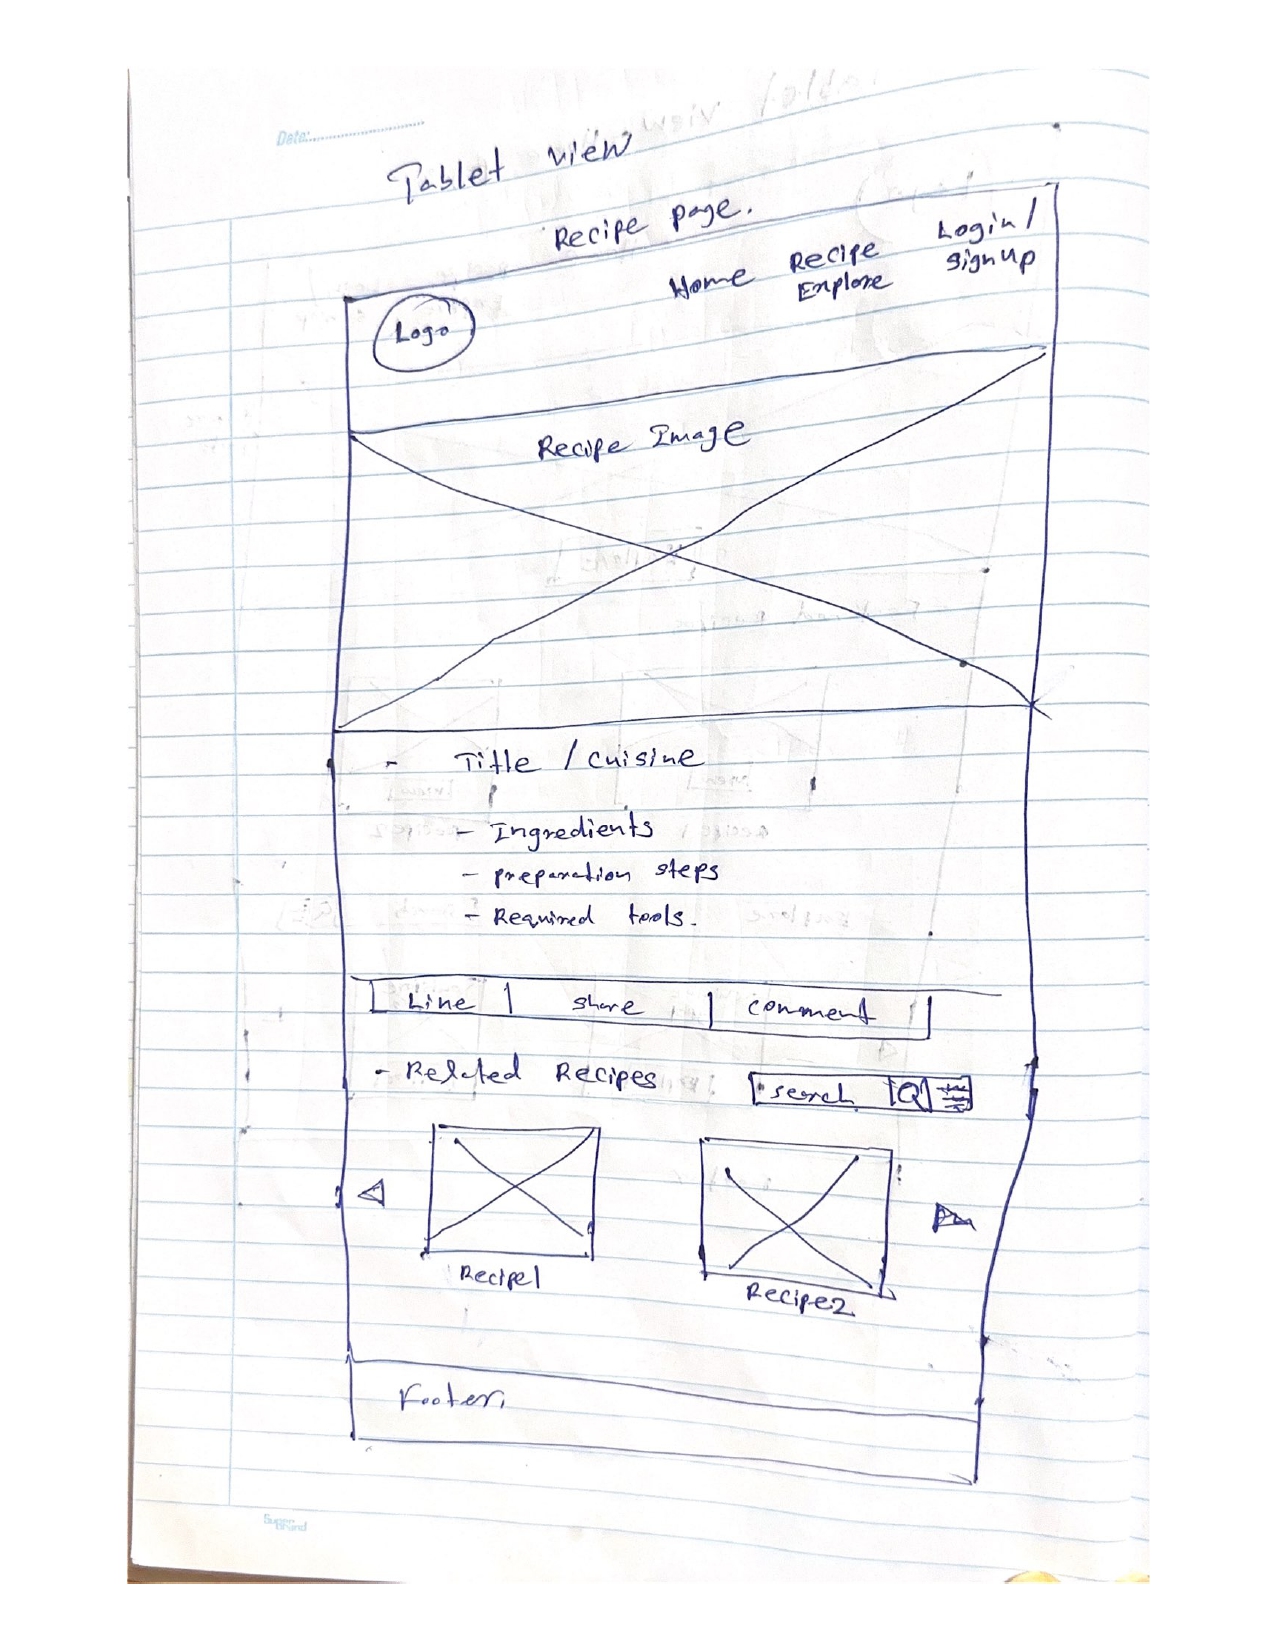 Date:
Tablet view
Recipe page.
Logo
Home
Recipe
Explore
Login /
Sign Up
Recipe Image
- Title / cuisine
- Ingredients
- preparation steps
- Required tools.
Line
share
comment
- Related Recipes
search
Recipe1
Recipe2
Footer
Super
Brand